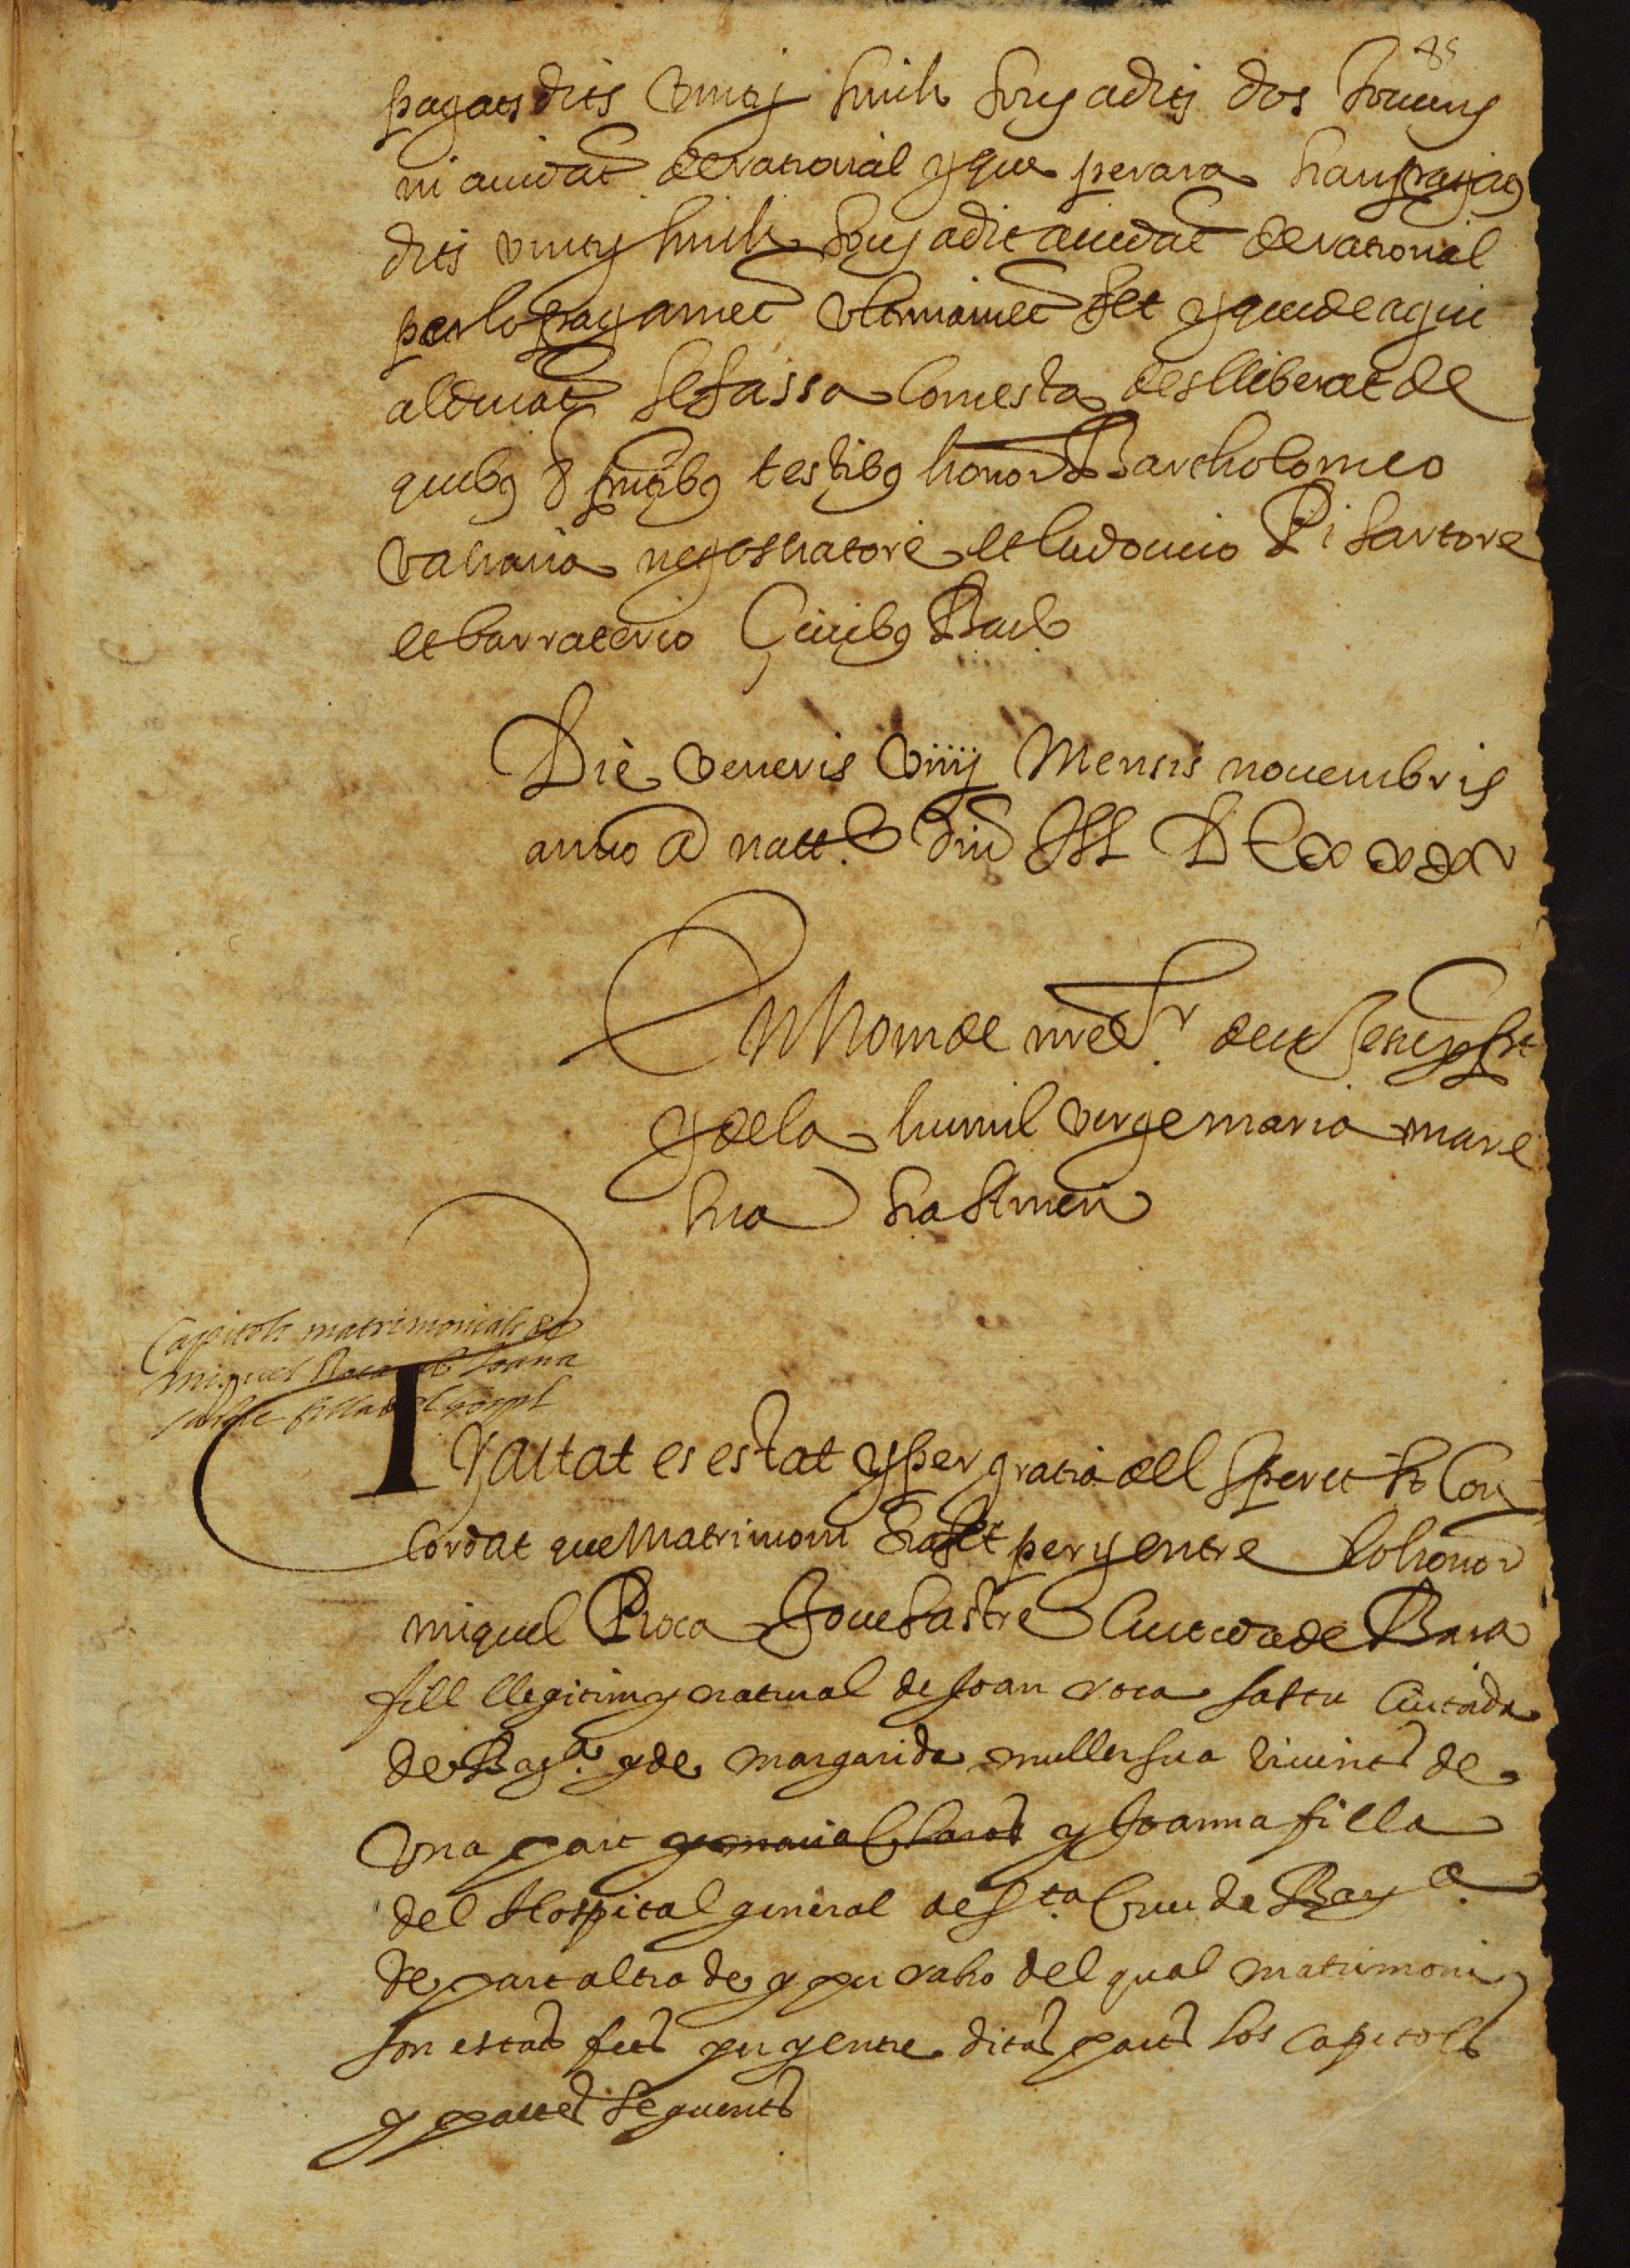 85
pagats dits vint y sinch sous a dits dos jovens
ni aiudat de rational y que per ara han pagats
dits vint y sinch sous a dit aiudat de rational
per lo pagamet ultimamet fet y que de aqui
al devat se fassa lo mes ha deslliberat de
quibg testibg honor Bartholomeo
negotiatore et ludovico Pi sartore
et barraterio Civibg Barb
Die veneris viiij Mensis novembris
anno a natt.e dni M D Lxxxxv
En Nom de nre Sr. deu Jesuxpst
y de la humil verge maria mare
sua sia Amen
Capitols matrimonials de
miquel Roca ab Joana
filla del hospl
Tractat es estat y per gratia del sperit st Con
cordat que Matrimoni sia fet per y entre lo honor
miquel Roca Jove sastre Ciutada de Barа
fill llegitim y natural de Joan roca sastre Ciutada
de Bara. y de margarida muller sua vivints de
Una part y Joanna filla
del Hospital general de Sta. Creu de Bara.
de part altra de y per raho del qual matrimoni
son estats fets per y entre ditas parts los Capitols
y pactes seguents